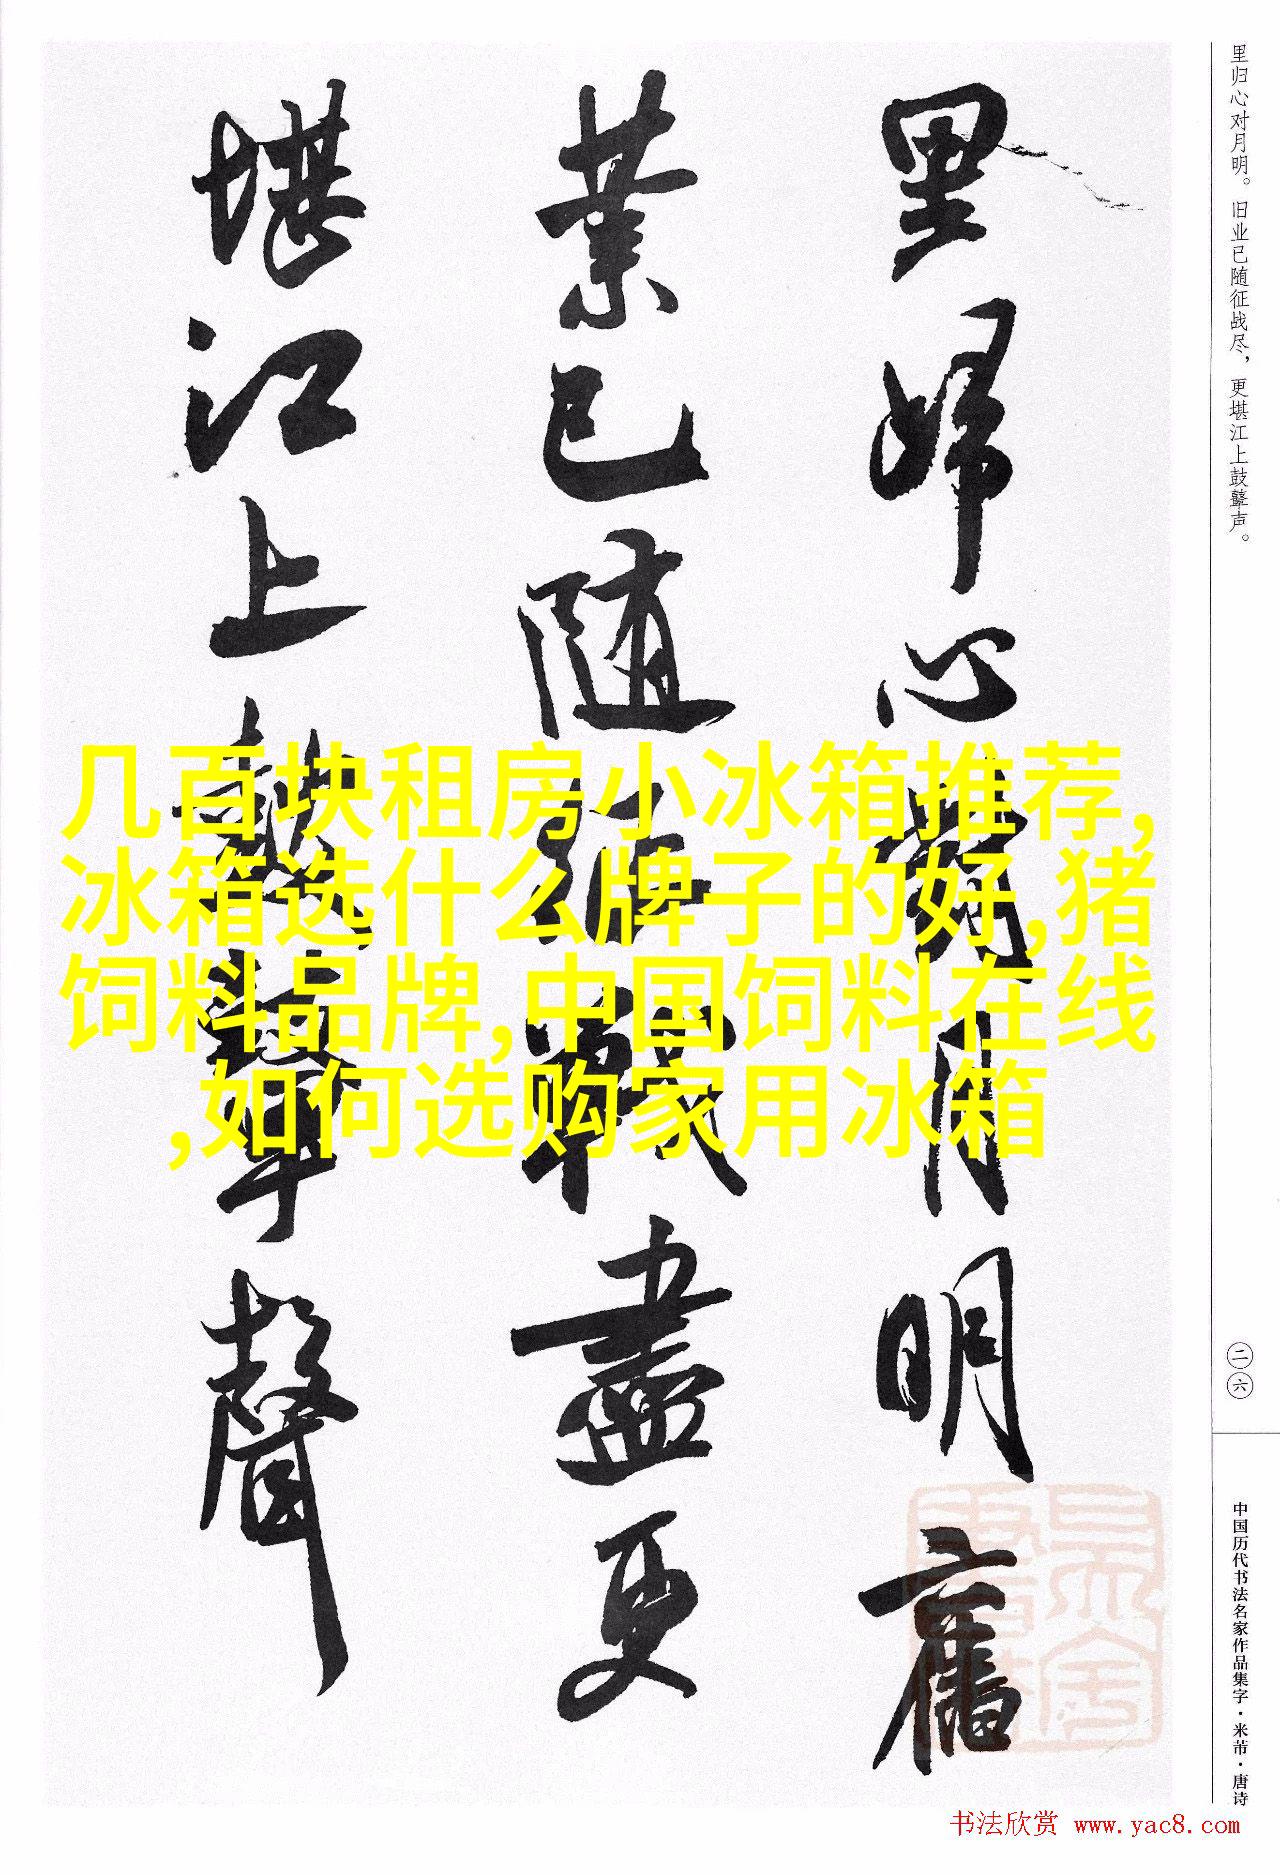 里归心对月明。旧业已随征战尽，更堪江上鼓鼙声。
里歸心對月明舊
業已隨征戰盡更
堪江上鼓鼙聲
几百块租房小冰箱推荐,
冰箱选什么牌子的好,猪
饲料品牌,中国饲料在线
,如何选购家用冰箱
二六
中国历代书法名家作品集字·米芾·唐诗
书法欣赏 www.yac8.com